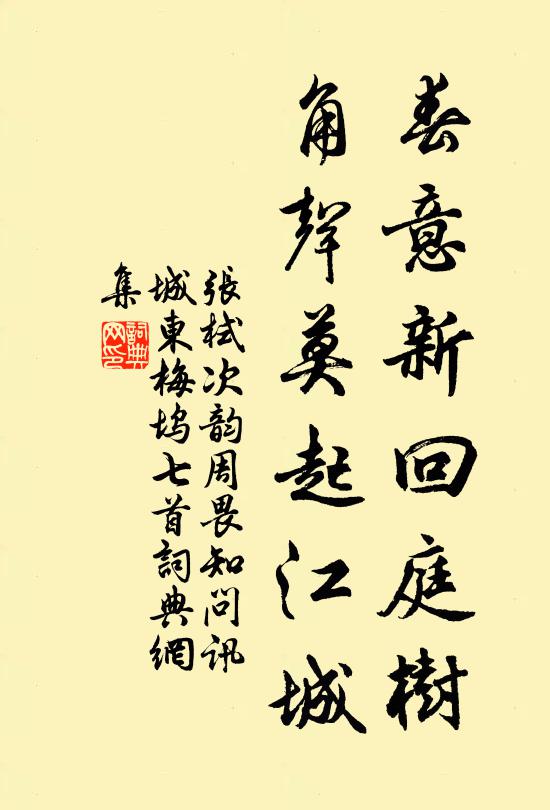 春意新回庭樹
角聲莫起江城
張栻次韵周畏知問訊
城東梅塢七首詞典網
集
詞典
网印